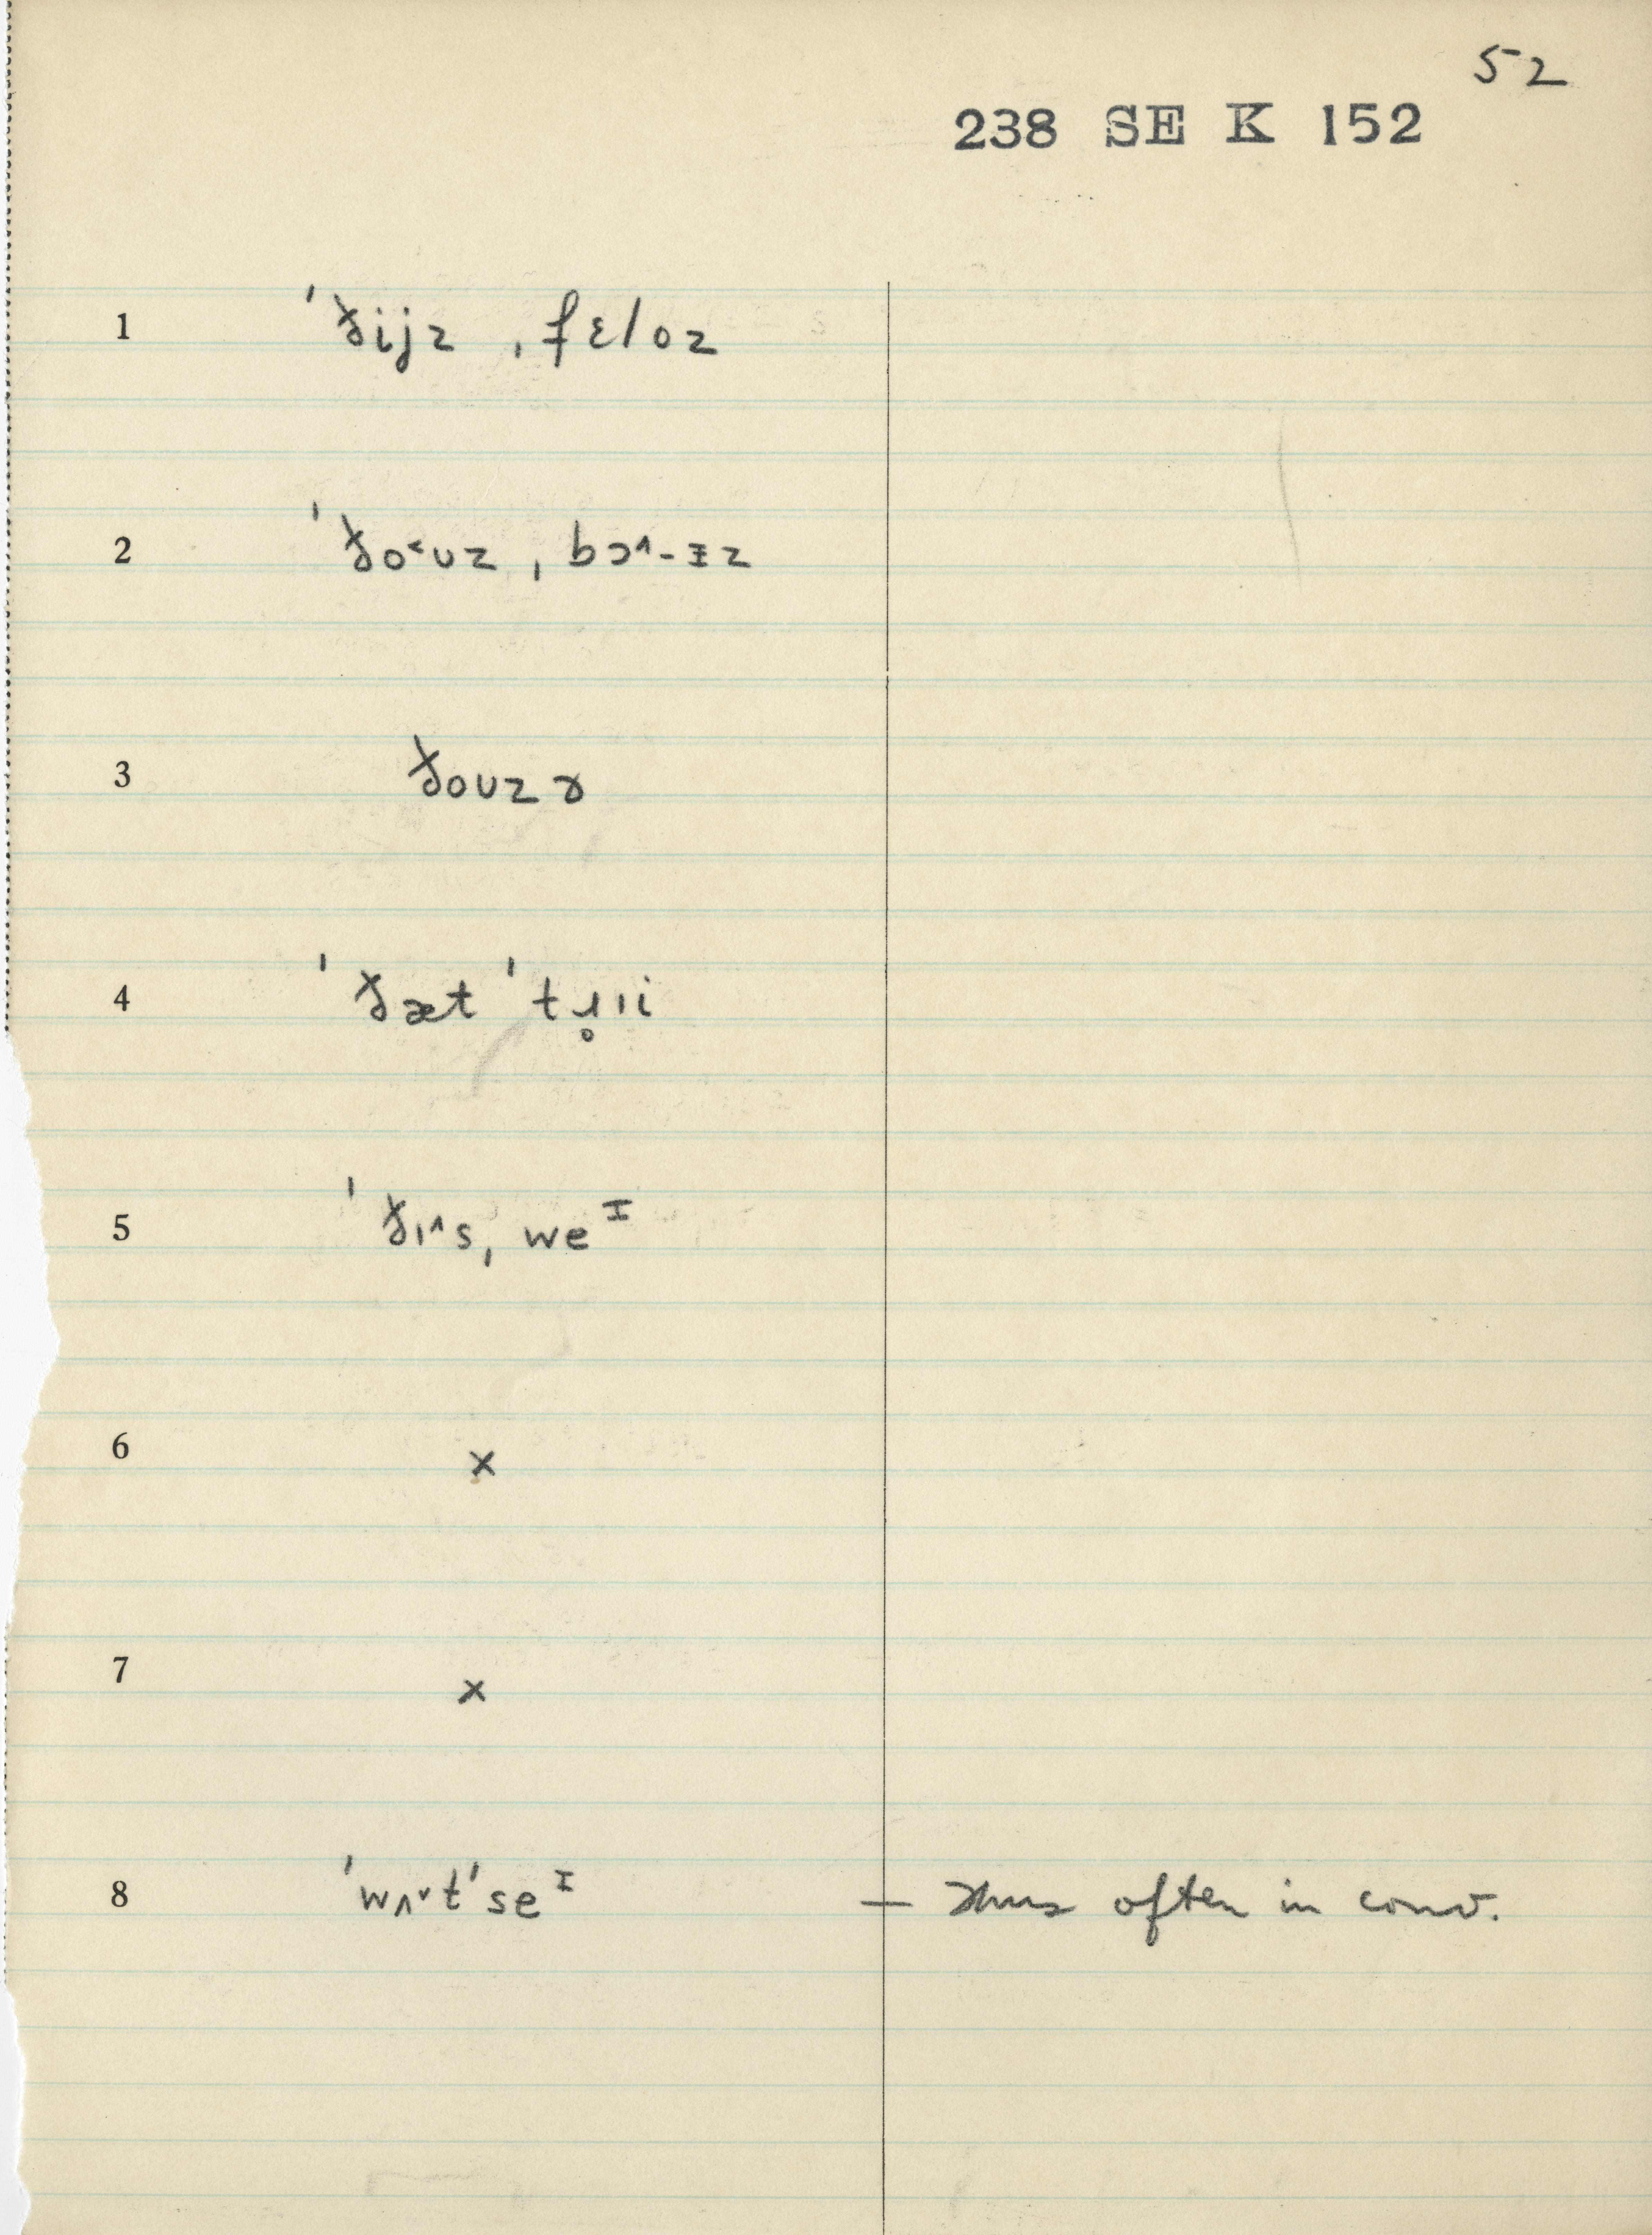 52
238 SE K 152
1 ˈðijz ˌfɛloz
2 ˈðo˂ʊz ˌbɔ˄-ɪz
3 ðoʊzɚ
4 ˈðæt ˈtɹ̥ıi
5 ˈðı˄s, weᴵ
6 x
7 x
8 ˈwʌ˅tˈseᴵ — Thus often in conv.